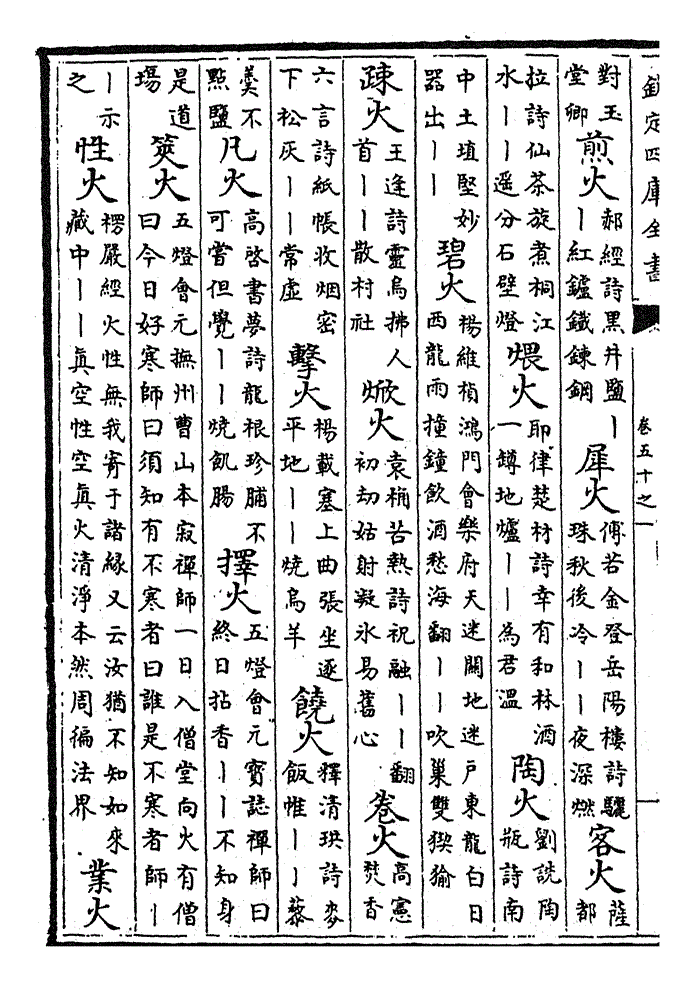 欽定四庫全書 卷五十之一
對玉堂卿 煎火 郝經詩黑井鹽丨丨紅鑪鐵鍊鋼 犀火 傅若金登岳陽樓詩驪珠秋後冷丨丨夜深燃 客火 薩都
拉詩仙茶旋煮桐江水丨丨遥分石壁燈 煨火 耶律楚材詩幸有和林酒一罇地爐丨丨為君溫 陶火 劉詵陶瓶詩南
中土埴堅妙器出丨丨 碧火 楊維楨鴻門會樂府天迷關地迷戶東龍白日西龍雨撞鐘飲酒愁海翻丨丨吹巢雙猰㺄
疎火 王逢詩靈烏拂人首丨丨散村社 焮火 袁桷苦熱詩祝融丨丨翻初劫姑射凝氷易舊心 卷火 高憲焚香
六言詩紙帳收烟密下松灰丨丨常虛 擊火 楊載塞上曲張坐逐平地丨丨燒烏羊 饒火 釋清珙詩麥飯惟丨丨藜
羹不點鹽 凡火 高啓書夢詩龍根珍脯不可嘗但覺丨丨燒飢腸 擇火 五燈會元寳誌禪師曰終日拈香丨丨不知身
是道場 筴火 五燈會元撫州曹山本寂禪師一日入僧堂向火有僧曰今日好寒師曰須知有不寒者曰誰是不寒者師丨
丨示之 性火 楞嚴經火性無我寄于諸緣又云汝猶不知如來藏中丨丨真空性空真火清淨本然周徧法界 業火